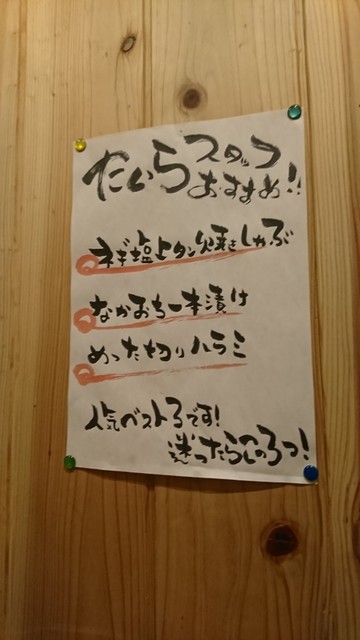 たいらスタッフ
おすすめ!!
ネギ塩上タン炙きしゃぶ
なかおち一本漬け
めった切りハラミ
人気ベスト3です!
迷ったらこの3つ!